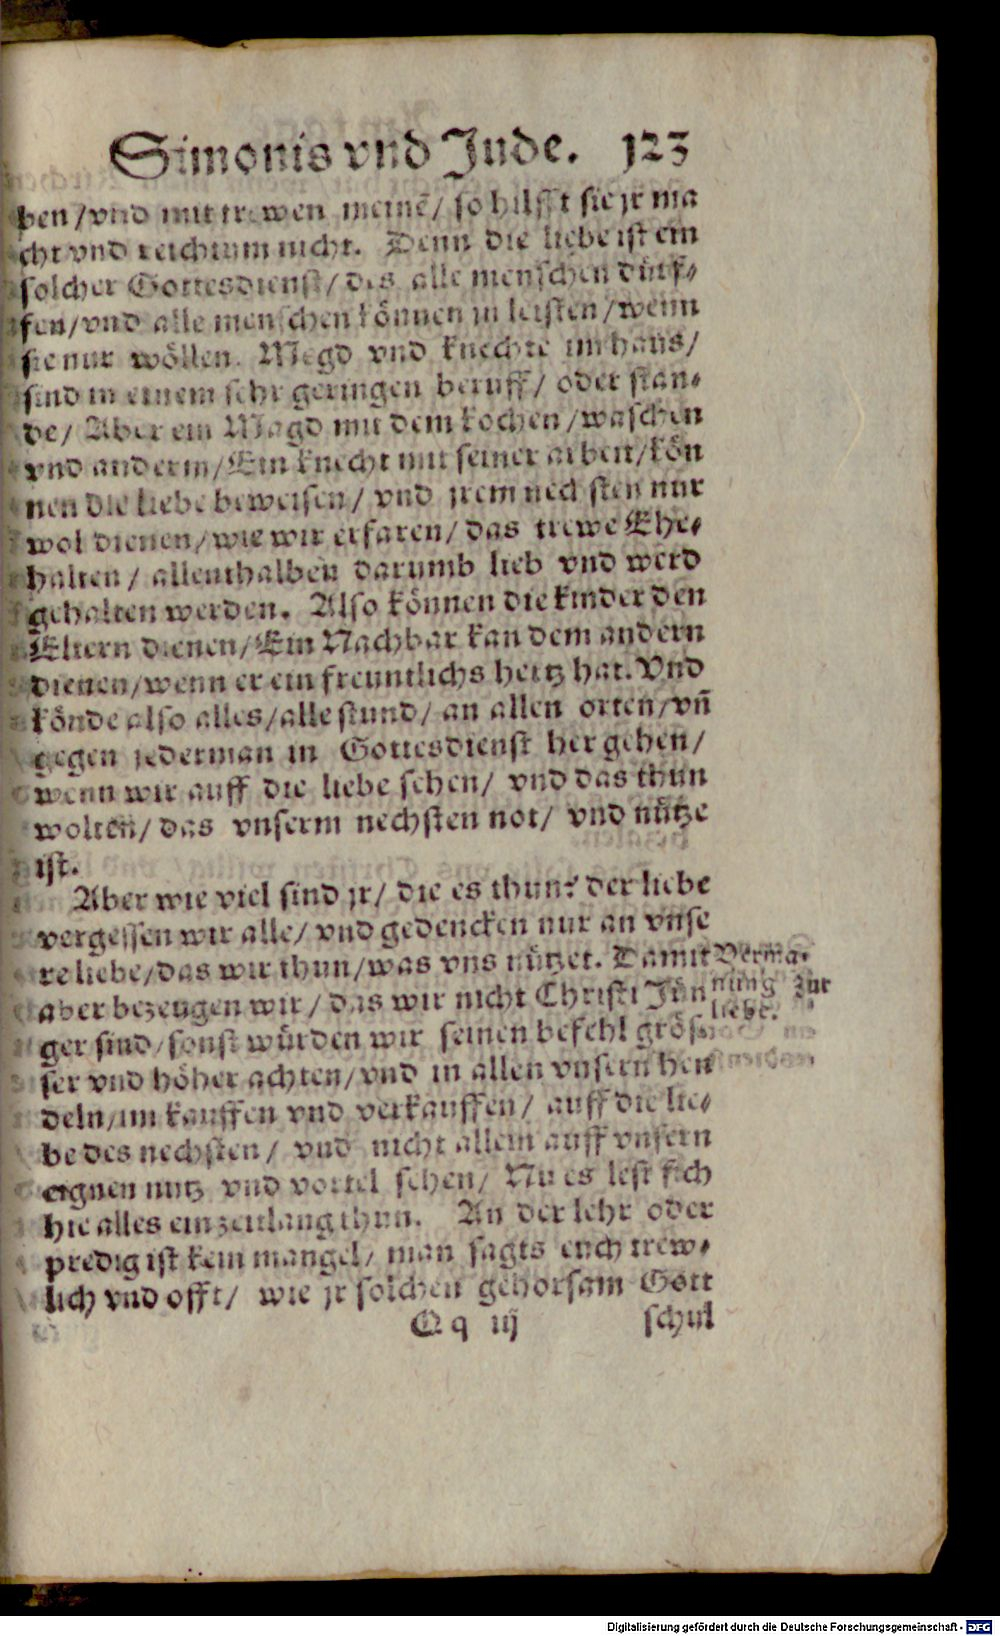 Simonis vnd Jude. 123
ben/vnd mit trewen meinẽ/ so hilfft sie jr ma
cht vnd reichtum nicht. Denn die liebe ist ein
solcher Gottesdienst/ des alle menschen dürf⸗
fen/vnd alle menschen können jn leisten/wenn
sie nur wöllen. Megd vnd knechte im haus/
sind in einem sehr geringen beruff/ oder stan⸗
de/ Aber ein Magd mit dem kochen/waschen
vnd anderm/Ein knecht mit seiner arbeit/kön
nen die liebe beweisen/ vnd jrem nechsten nur
wol dienen/wie wir erfaren/das trewe Ehe⸗
halten/ allenthalben darumb lieb vnd werd
gehalten werden. Also können die kinder den
Eltern dienen/Ein Nachbar kan dem andern
dienen/wenn er ein freuntlichs hertz hat. Vnd
könde also alles/alle stund/ an allen orten/vñ
gegen jederman in Gottesdienst her gehen/
wenn wir auff die liebe sehen/ vnd das thun
wolten/ das vnserm nechsten not/ vnd nütze
ist.
Aber wie viel sind jr/ die es thun? der liebe
vergessen wir alle/ vnd gedencken nur an vnse
re liebe/das wir thun/was vns nützet. Damit
aber bezeugen wir/ das wir nicht Christi Jün
ger sind/sonst würden wir seinen befehl grös⸗
ser vnd höher achten/vnd in allen vnsern hen
deln/im kauffen vnd verkauffen/ auff die lie⸗
be des nechsten/ vnd nicht allein auff vnsern
eignen nutz vnd vortel sehen/ Nu es lest sich
hie alles ein zeitlang thun. An der lehr oder
predig ist kein mangel/ man sagts euch trew⸗
lich vnd offt/ wie jr solchen gehorsam Gott
Verma⸗
nung zur
liebe.
Qq iij schul
Digitalisierung gefördert durch die Deutsche Forschungsgemeinschaft - DFG